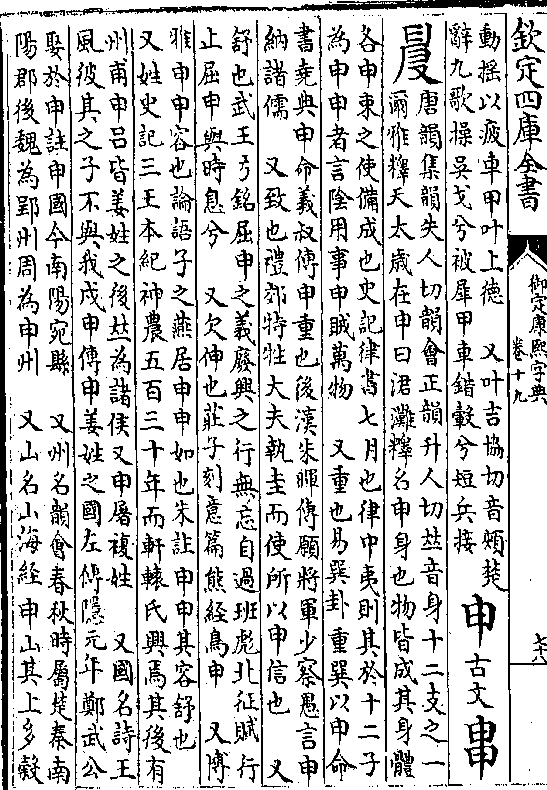 欽定四庫全書
御定康熙字典
卷十九
七十八
動揺以疲車甲叶上德 又叶吉協切音頰楚
辭九歌操吳戈兮被犀甲車錯轂兮短兵接 申 古文 𤰶
𦥔 唐韻集韻失人切韻會正韻升人切𠀤音身十二支之一
爾雅釋天太歳在申曰涒灘釋名申身也物皆成其身體
各申束之使備成也史記律書七月也律中夷則其於十二子
為申申者言隂用事申賊萬物 又重也易巽卦重巽以申命
書堯典申命羲叔傳申重也後漢朱暉傳願將軍少察愚言申
納諸儒 又致也禮郊特牲大夫執圭而使所以申信也 又
舒也武王弓銘屈申之義廢興之行無忘自過班彪北征賦行
止屈申與時息兮 又欠伸也莊子刻意篇熊經鳥申 又博
雅申申容也論語子之燕居申申如也朱註申申其容舒也
又姓史記三王本紀神農五百三十年而軒轅氏興焉其後有
州甫申吕皆姜姓之後𠀤為諸侯又申屠複姓 又國名詩王
風彼其之子不與我戍申傳申姜姓之國左傳隱元年鄭武公
娶於申註申國今南陽宛縣 又州名韻會春秋時屬楚秦南
陽郡後魏為郢州周為申州 又山名山海經申山其上多榖